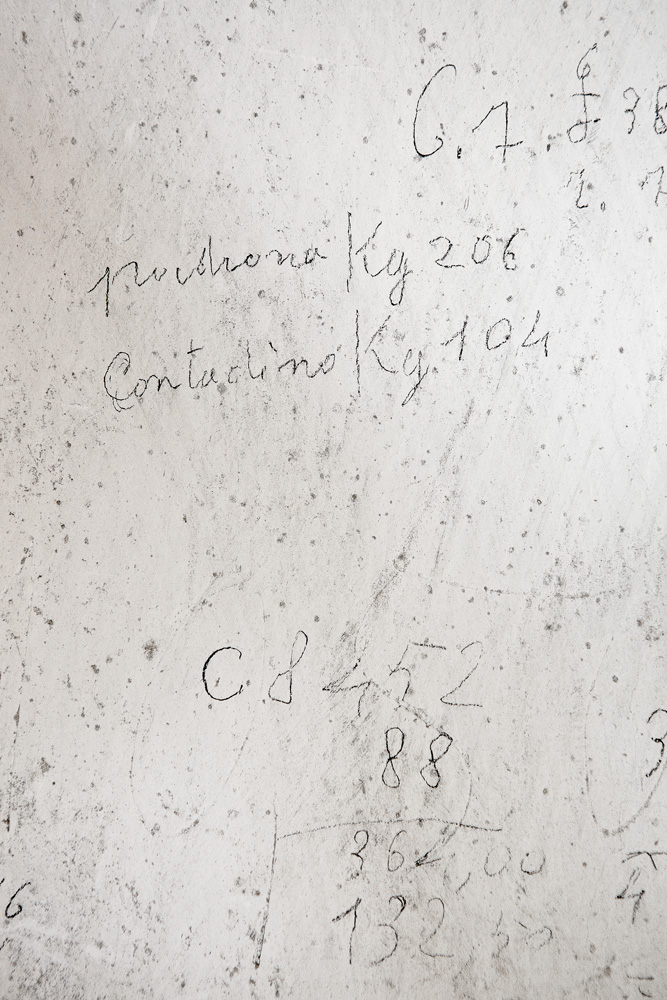 C.7. £ 38
padrona Kg 206
Contadino Kg 104
C 8 452
88
364,00
132,50
3
4
6